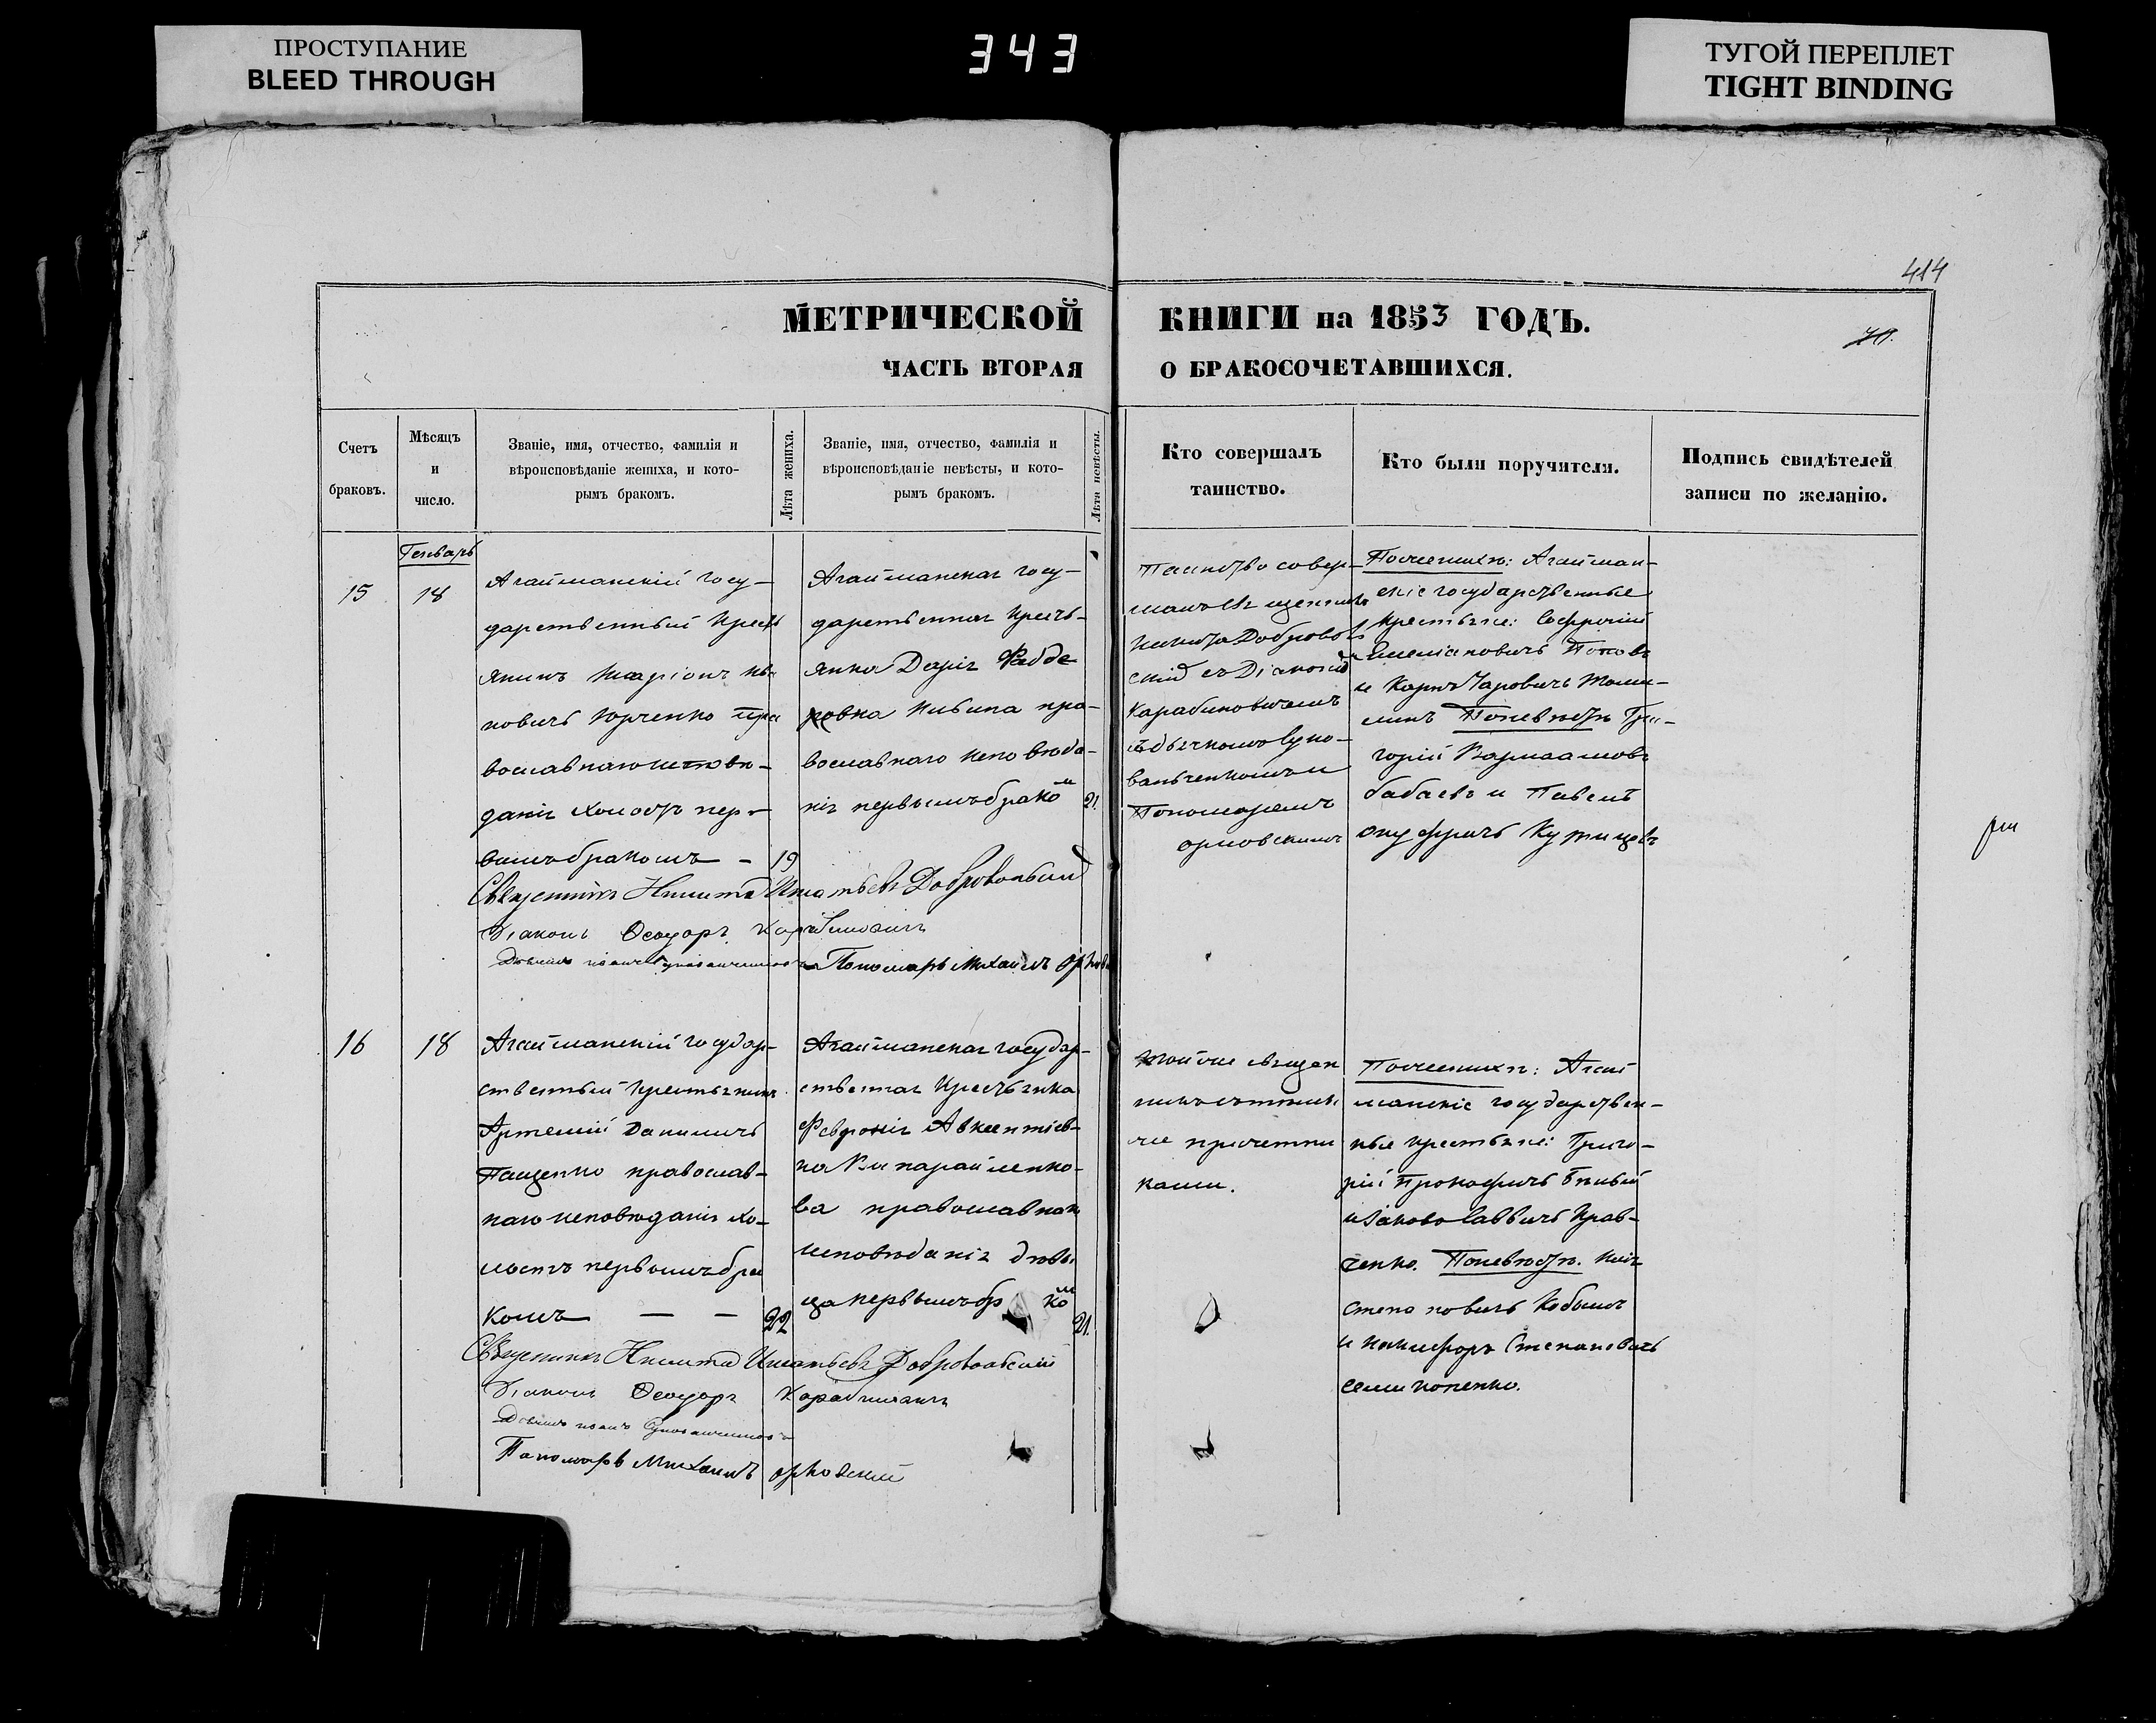 ПРОСТУПАНИЕ
BLEED THROUGH
343
ТУГОЙ ПЕРЕПЛЕТ
TIGHT BINDING
414
МЕТРИЧЕСКОЙ
КНИГИ на 1853 ГОДЪ.
ЧАСТЬ ВТОРАЯ
О БРАКОСОЧЕТАВШИХСЯ.
Счетъ
браковъ.
Мѣсяцъ
и
число.
Званіе, имя, отчество, фамилія и
вѣроисповѣданіе жениха, и кото-
рымъ бракомъ.
Лѣта жениха.
Званіе, имя, отчество, фамилія и
вѣроисповѣданіе невѣсты, и кото-
рымъ бракомъ.
Лѣта невѣсты.
Кто совершалъ
таинство.
Кто были поручители.
Подпись свидѣтелей
записи по желанію.
Генварь
15
18
Агайманскій госу-
дарственный крестъ
янинъ Иларіонъ Ив
новичъ Юрченко пра
вославнаго исповѣ-
данія холостъ пер-
вымъ бракомъ
19
Агайманская госу-
дарственная кресть-
янка Дарія Фадде
ровна
православнаго исповѣда-
нія первымъ бракомъ
21.
Таинство совер-
шалъ Священникъ
Никита Доброволь
скій съ Діакономъ
Карабиновичемъ
Пономаремъ
Орловскимъ
По женихѣ: Агайман-
скіе государственные
крестьяне: Софроній
Емеліановичъ Поповъ
и Карпъ
По невѣстѣ Гри-
горій Варлаамовъ
Бабаевъ и Павелъ
Священникъ Никита Игнатьевъ Добровольскій
Діаконъ Ѳеодоръ Карабиновичъ
Пономарь Михаилъ Орловскій
16
18
Агайманскій государ-
ственный крестьянинъ
Артемій Даниличъ
Пащенко православ-
наго исповѣданія хо-
лостъ первымъ бра
комъ
22
Агайманская государ-
ственная крестьянка
Февронія Авксентіев-
на
ва православнаго
исповѣданія дѣви
ца первымъ бракомъ
21.
тойже священ
никъ съ тѣми
же причетни
ками.
По женихѣ: Агай
манскіе государствен-
ные крестьяне: Григо-
рій Прокофичъ Бѣлый
и Яковъ Саввичъ Крав-
ченко. По невѣстѣ. Илія
Степановичъ Кобылъ
и Никифоръ Степановичъ
Священникъ Никита Игнатьевъ Добровольскій
Діаконъ Ѳеодоръ Карабиновичъ
Пономарь Михаилъ Орловскій